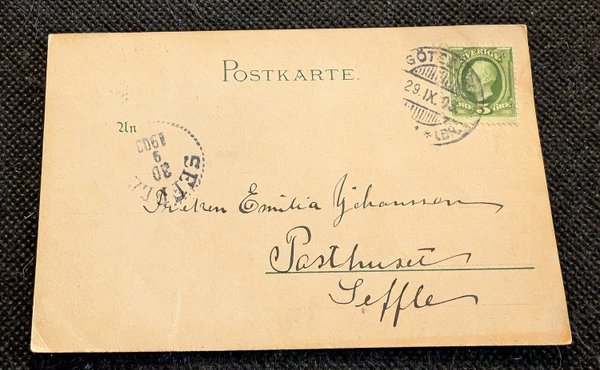 POSTKARTE.
SVERIGE
GÖTE
29.IX.
5 ÖRE
An
SEFFLE
30
9
1903
Fröken Emilia Johansson
Posthuset
Seffle